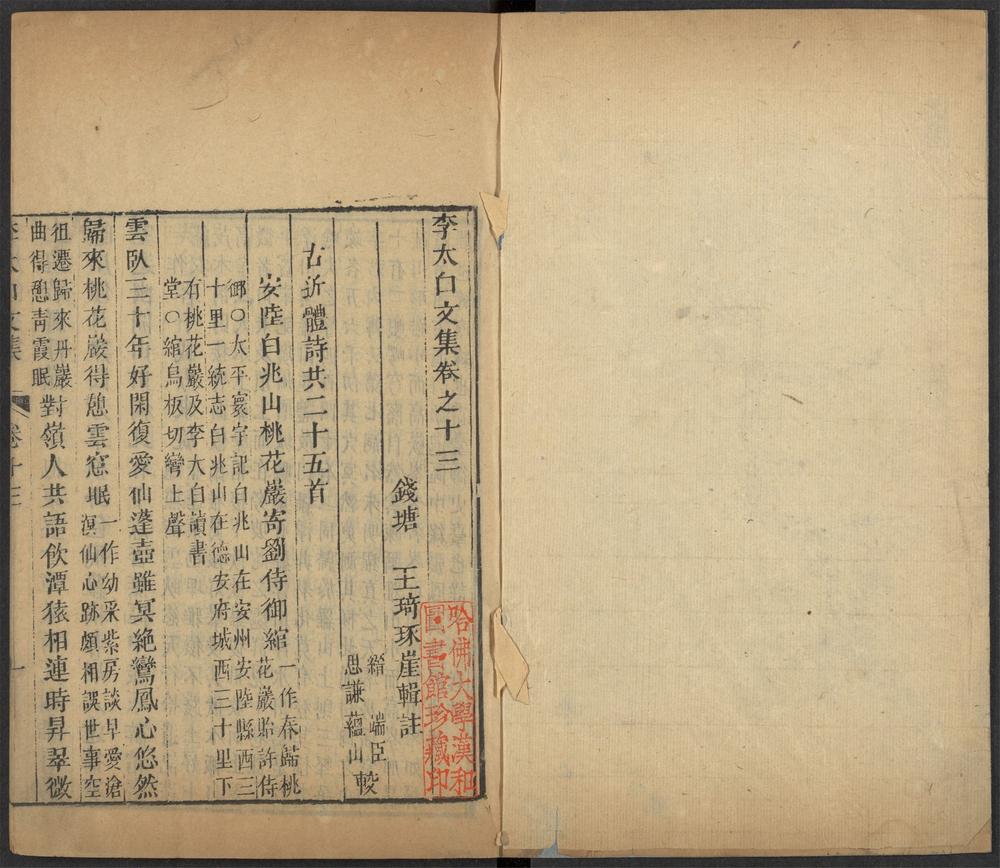 李太白文集卷之十三
錢塘 王琦琢崖輯註
縉 端臣
思謙蘊山 較
古近體詩共二十五首
安陸白兆山桃花巖寄劉侍御綰
一作春歸桃
花巖貽許侍
御○太平寰宇記白兆山在安州安陸縣西三
十里一統志白兆山在德安府城西三十里下
有桃花巖及李太白讀書
堂○綰烏板切彎上聲
雲臥三十年好閑復愛仙蓬壺雖冥絶鸞鳳心悠然
歸來桃花巖得憩雲窓眠
一作幼采紫房談早愛滄
溟仙心跡頗相誤世事空
徂遷歸來丹巖
曲得憩青霞眠
對嶺人共語飲潭猿相連時昇翠微
李太白文集
卷十三
一
哈佛大學漢和
圖書館珍藏印